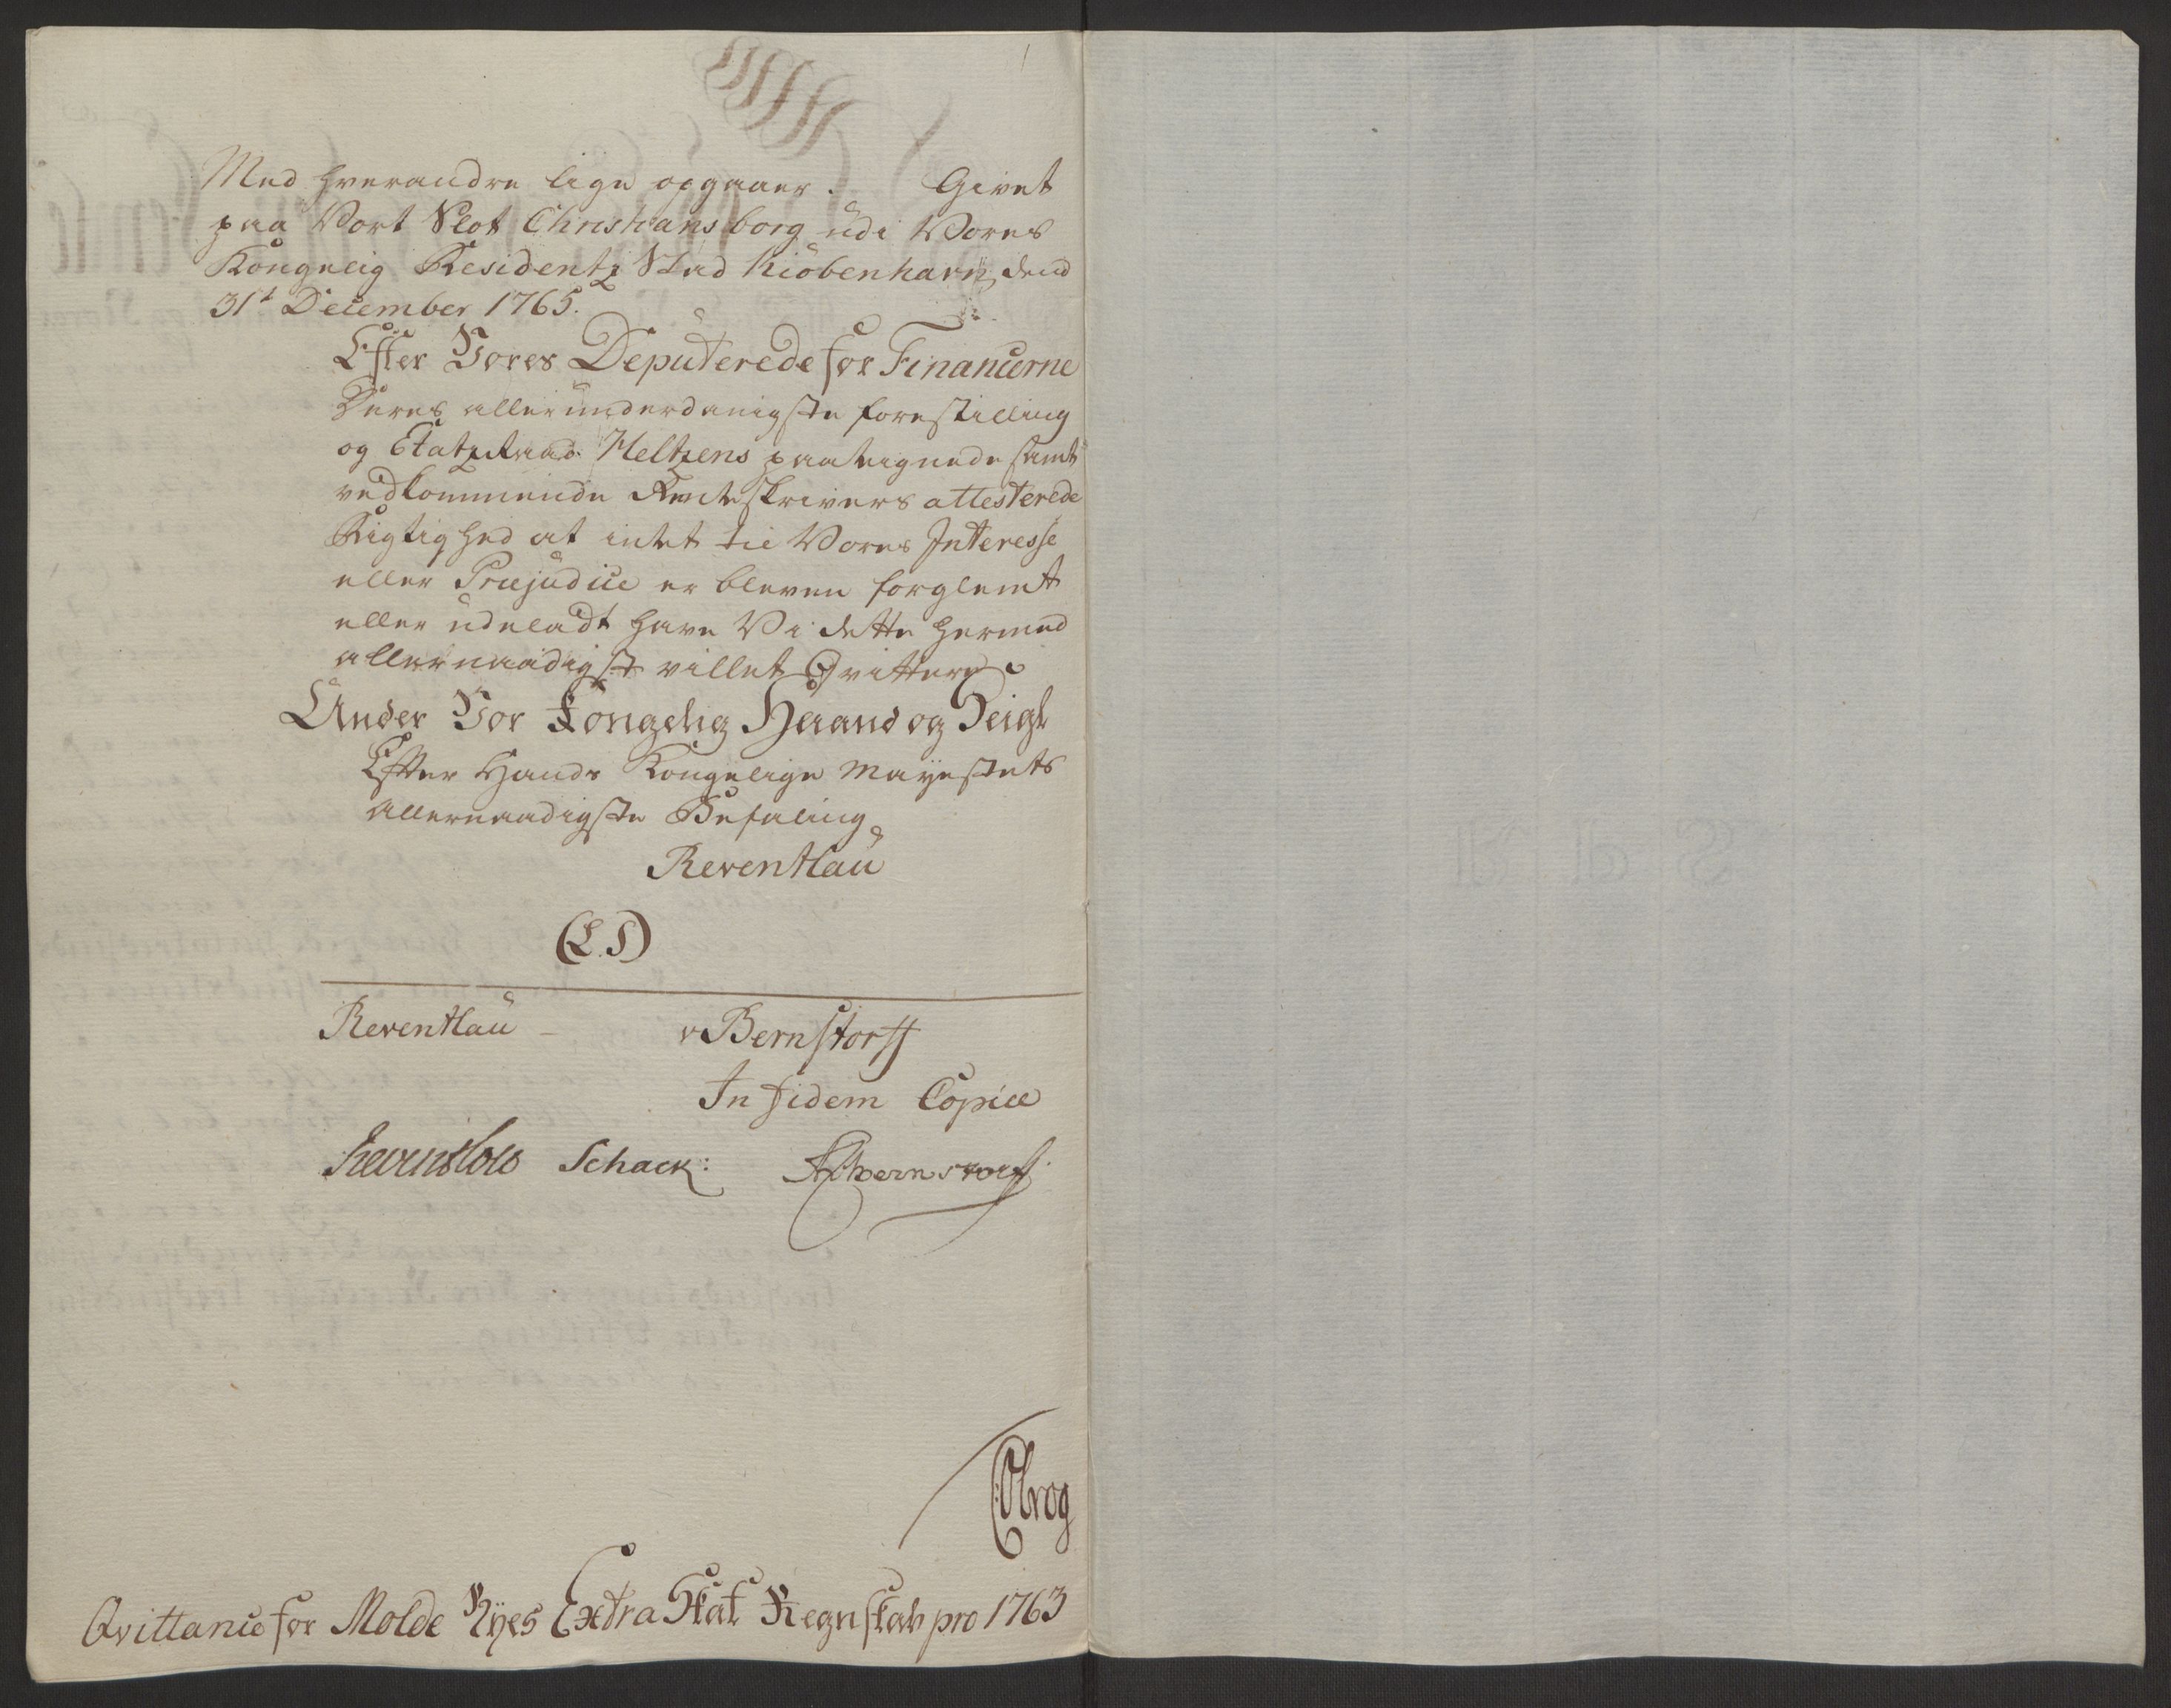 Med hverandre lige opgaaer. Givet
paa Vort Slot Christiansborg udi Vores
Kongelig Residentz Stad Kiöbenhavn, dend
31t December 1765.
Efter Vores Deputerede for Financerne
Deres allerunderdanigste forestilling
og Etatzraad Heltzens paategnede samt
vedkommende Renteskrivers attesterede
Rigtighed at intet til Vores Interesse
eller Præjudice er bleven forglemt
eller udeladt have Vi dette hermed
allernaadigst villet Qvittere
Under Vor Kongelig Haand og Seigl
Efter Hands Kongelige Mayestets
Allernaadigste Befaling
Reventlau
(L.S)
Reventlau - v Bernstorff
In fidem Copiæ
Reventlow Schack: Bernstorff
Qvittance for Molde Byes Extra Skat Regnskab pro 1763